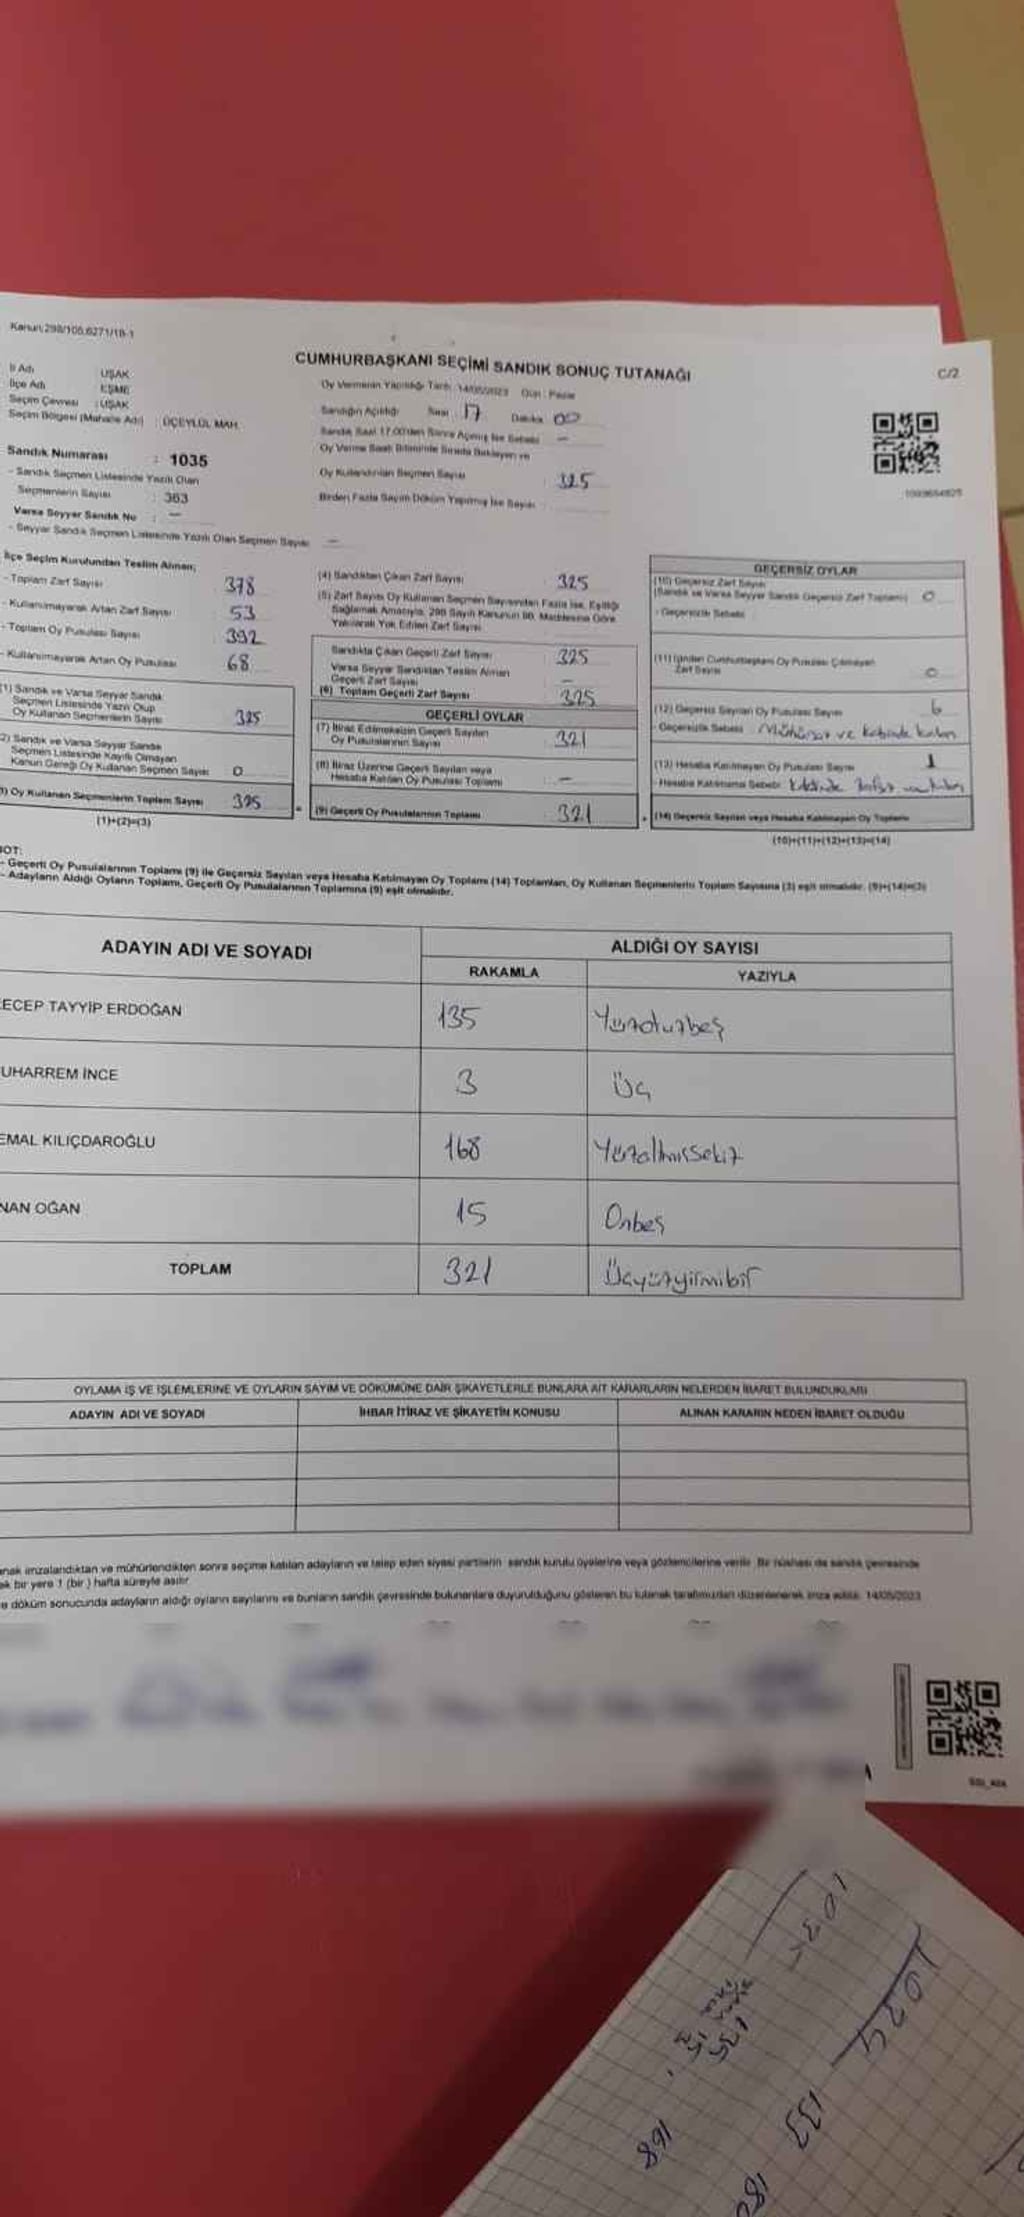 Kanun:298/105,6271/18-1
CUMHURBAŞKANI SEÇİMİ SANDIK SONUÇ TUTANAĞI
C/2
İl Adı UŞAK
İlçe Adı EŞME
Seçim Çevresi : UŞAK
Seçim Bölgesi (Mahalle Adı) : ÜÇEYLÜL MAH.
Oy Vermenin Yapıldığı Tarih : 14/05/2023 Gün : Pazar
Sandığın Açıldığı Saat 17 Dakika 00
Sandık Saat 17.00'den Sonra Açılmış İse Sebebi –
Oy Verme Saati Bitiminde Sırada Bekleyen ve
Oy Kullandırılan Seçmen Sayısı 325
Birden Fazla Sayım Döküm Yapılmış İse Sayısı
Sandık Numarası : 1035
- Sandık Seçmen Listesinde Yazılı Olan
Seçmenlerin Sayısı : 363
Varsa Seyyar Sandık No : –
- Seyyar Sandık Seçmen Listesinde Yazılı Olan Seçmen Sayısı –
İlçe Seçim Kurulundan Teslim Alınan;
- Toplam Zarf Sayısı 378
- Kullanılmayarak Artan Zarf Sayısı 53
- Toplam Oy Pusulası Sayısı 392
- Kullanılmayarak Artan Oy Pusulası 68
(1) Sandık ve Varsa Seyyar Sandık
Seçmen Listesinde Yazılı Olup
Oy Kullanan Seçmenlerin Sayısı 325
(2) Sandık ve Varsa Seyyar Sandık
Seçmen Listesinde Kayıtlı Olmayan
Kanun Gereği Oy Kullanan Seçmen Sayısı 0
) Oy Kullanan Seçmenlerin Toplam Sayısı 325
(1)+(2)=(3)
(4) Sandıktan Çıkan Zarf Sayısı : 325
(5) Zarf Sayısı Oy Kullanan Seçmen Sayısından Fazla İse, Eşitliği
Sağlamak Amacıyla, 298 Sayılı Kanunun 98. Maddesine Göre
Yakılarak Yok Edilen Zarf Sayısı
Sandıkta Çıkan Geçerli Zarf Sayısı 325
Varsa Seyyar Sandıktan Teslim Alınan
Geçerli Zarf Sayısı –
(6) Toplam Geçerli Zarf Sayısı 325
GEÇERLİ OYLAR
(7) İtiraz Edilmeksizin Geçerli Sayılan
Oy Pusulalarının Sayısı 321
(8) İtiraz Üzerine Geçerli Sayılan veya
Hesaba Katılan Oy Pusulası Toplamı –
(9) Geçerli Oy Pusulalarının Toplamı 321
GEÇERSİZ OYLAR
(10) Geçersiz Zarf Sayısı
(Sandık ve Varsa Seyyar Sandık Geçersiz Zarf Toplamı) 0
- Geçersizlik Sebebi
(11) İçinden Cumhurbaşkanı Oy Pusulası Çıkmayan
Zarf Sayısı 0
(12) Geçersiz Sayılan Oy Pusulası Sayısı 6
- Geçersizlik Sebebi ve kabinde kalan
(13) Hesaba Katılmayan Oy Pusulası Sayısı 1
- Hesaba Katılmama Sebebi
(14) Geçersiz Sayılan veya Hesaba Katılmayan Oy Toplamı
(10)+(11)+(12)+(13)=(14)
NOT:
- Geçerli Oy Pusulalarının Toplamı (9) ile Geçersiz Sayılan veya Hesaba Katılmayan Oy Toplamı (14) Toplamları, Oy Kullanan Seçmenlerin Toplam Sayısına (3) eşit olmalıdır. (9)+(14)=(3)
- Adayların Aldığı Oyların Toplamı, Geçerli Oy Pusulalarının Toplamına (9) eşit olmalıdır.
ADAYIN ADI VE SOYADI
ALDIĞI OY SAYISI
RAKAMLA YAZIYLA
ECEP TAYYİP ERDOĞAN 135 Yüzotuzbeş
UHARREM İNCE 3 Üç
EMAL KILIÇDAROĞLU 168 Yüzaltmışsekiz
NAN OĞAN 15 Onbeş
TOPLAM 321 Üçyüzyirmibir
OYLAMA İŞ VE İŞLEMLERİNE VE OYLARIN SAYIM VE DÖKÜMÜNE DAİR ŞİKAYETLERLE BUNLARA AİT KARARLARIN NELERDEN İBARET BULUNDUKLARI
ADAYIN ADI VE SOYADI İHBAR İTİRAZ VE ŞİKAYETİN KONUSU ALINAN KARARIN NEDEN İBARET OLDUĞU
anak imzalandıktan ve mühürlendikten sonra seçime katılan adayların ve talep eden siyasi partilerin sandık kurulu üyelerine veya gözlemcilerine verilir. Bir nüshası da sandık çevresinde
ak bir yere 1 (bir) hafta süreyle asılır.
e döküm sonucunda adayların aldığı oyların sayılarını ve bunların sandık çevresinde bulunanlara duyurulduğunu gösteren bu tutanak tarafımızdan düzenlenerek imza edildi. 14/05/2023
1024
135
15
168
133